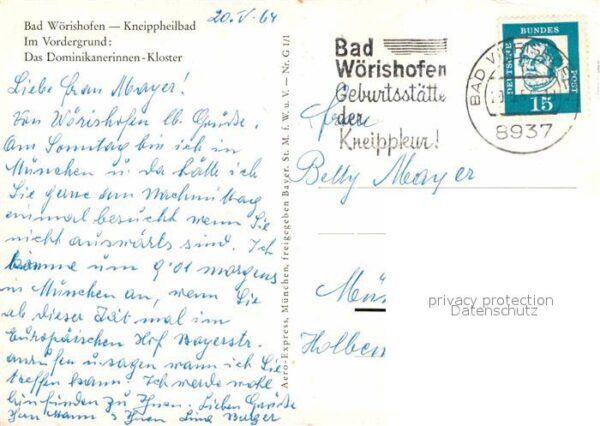 20.V.64
Bad Wörishofen — Kneippheilbad
Im Vordergrund:
Das Dominikanerinnen-Kloster
Liebe Frau Mayer!
Von Wörishofen lb. Grüße.
Am Sonntag bin ich in
München u da hätte ich
Sie gerne am Nachmittag
einmal besucht wenn Sie
nicht auswärts sind. Ich
komme um 9'01 morgens
in München an, wenn Sie
ab dieser Zeit mal im
Europäischen Hof Bayerstr.
anrufen u sagen wann ich Sie
treffen kann. Ich werde wohl
hinfinden zu Ihnen. Lieben Grüße
Ihnen Berger
Aero-Express, München, freigegeben Bayer. St. M. f. W. u. V. — Nr. G 1/1
Bad
Wörishofen
Geburtsstätte
der
Kneippkur!
BAD
8937
DEUTSCHE BUNDES POST
15
Frau
Betty Mayer
Mün
Holben
privacy protection
Datenschutz